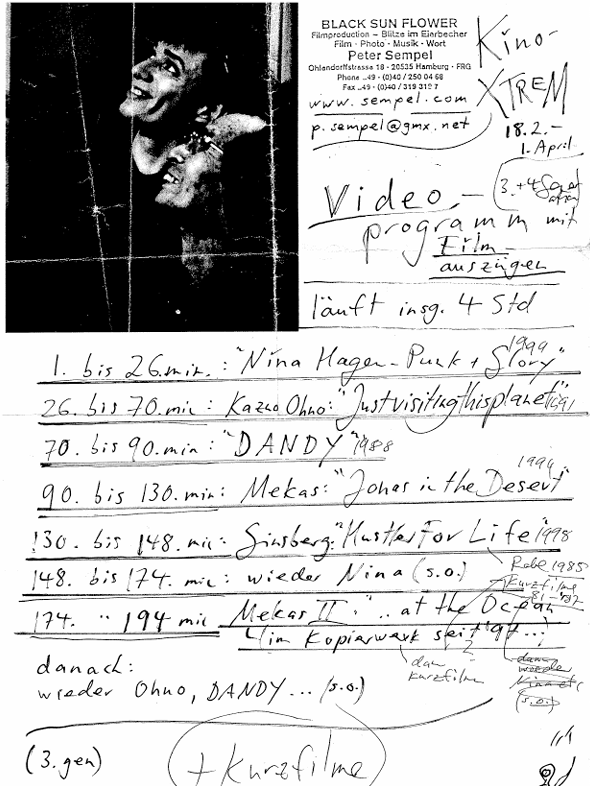 BLACK SUN FLOWER
Filmproduction – Blitze im Eierbecher
Film · Photo · Musik · Wort
Peter Sempel
Ohlandorffstrasse 18 · 20535 Hamburg · FRG
Phone ..49 · (0)40 / 250 04 68
Fax ..49 · (0)40 / 319 319 7
www.sempel.com
p.sempel@gmx.net
Kino-
XTREM
18.2.–
1. April
3. + 4.
Video-
programm mit
Film-
auszügen
läuft insg. 4 Std
1. bis 26.min.: "Nina Hagen-Punk + Glory" 1999
26. bis 70.min: Kazuo Ohno: "Just visiting this planet" 1991
70. bis 90.min: "DANDY" 1988
90. bis 130.min: Mekas: "Jonas in the Desert" 1994
130. bis 148.min: Ginsberg: "Hustler For Life" 1998
Rabe 1985
148. bis 174. min: wieder Nina (s.o.)
Kurzfilme
81-'87
174. " 194 min Mekas II: ".. at the Ocean
im Kopierwerk seit '97 ...
dann
kurzfilme
dann
wieder
(s.o.)
danach:
wieder Ohno, DANDY ... (s.o.)
(3.gen)
+ Kurzfilme